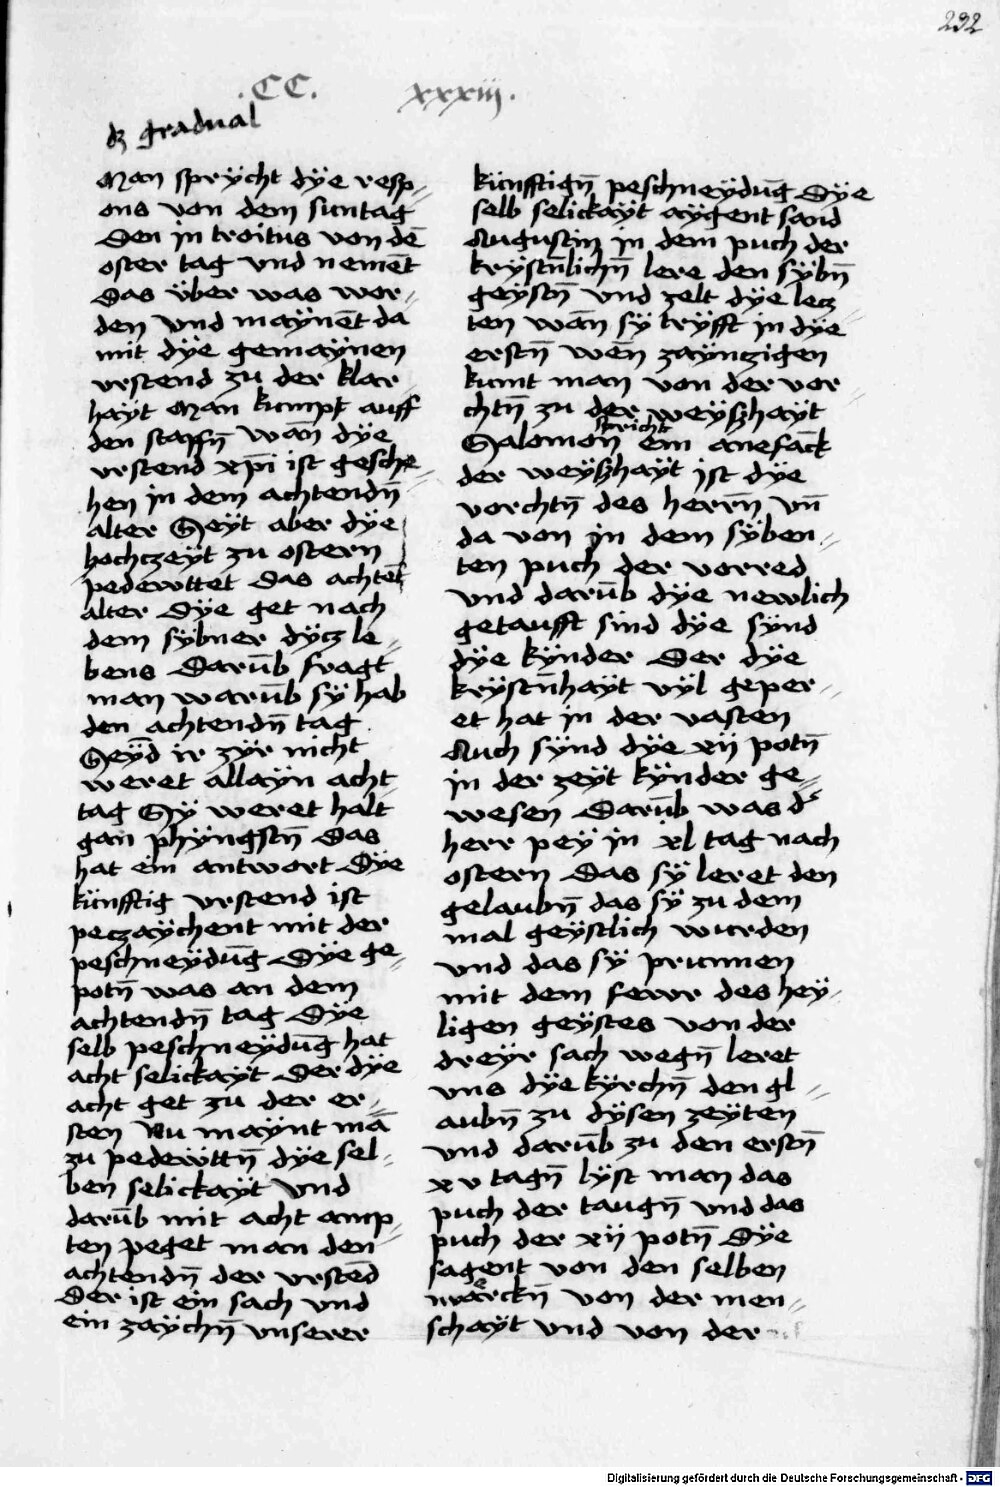 232
.CC. xxxiij.
dz gradual
Man sprÿcht dÿe resp//
ons von dem suntag
Den in troitus von dē
oster tag vnd nemēt
Das über was wor//
den vnd maÿnēt da
mit dÿe gemaÿnen
vrstend zu der klar
haÿt Man kumpt auff
den staffn̄ wān dÿe
vrstend xp̄i ist gesche//
hen in dem achtendn̄
alter Seÿt aber dÿe
hochczeÿt zu ostern
pedewttet Das achtēt
alter Dÿe get nach
dem sÿbner dÿcz le//
bens Darūb fragt
man warūb sÿ hab
den achtendn̄ tag
Seÿd ir zÿr nicht
weret allaÿn acht
tag Sÿ weret halt
gan phÿngstn̄ Das
hat ein antwort Dÿe
künfftig vrstend ist
peczaÿchent mit der
peschneÿdūg Dÿe ge//
potn̄ was an dem
achtendn̄ tag Dÿe
selb peschneÿdūg hat
acht selickaÿt Der dÿe
acht get zu der er//
sten Nu maÿnt mā
zu pedewttn̄ dÿe sel//
ben selickaÿt vnd
darūb mit acht amp//
ten peget man den
achtendn̄ der vrstēd
Der ist ein sach vnd
ein zaÿchn̄ vnserer
künfftign̄ peschneÿdūg Dÿe
selb selickaÿt aÿgent sand
Augustin in dem puch der
krÿstn̄lichn̄ lere den sÿbn̄
geÿstn̄ vnd zelt dÿe lecz//
ten wān sÿ trÿfft in dÿe
erstn̄ wēn zaÿnzigen
kumt man von der vor//
chtn̄ zu der weÿszhaÿt
spricht
Salomon ein anefāck
der weÿszhaÿt ist dÿe
vorchtn̄ des herrn̄ vn̄
da von in dem sÿben//
ten puch der vorred
vnd darūb dÿe newlich
getaufft sind dÿe sÿnd
dÿe kÿnder Der dÿe
krÿstn̄haÿt vÿl geper//
et hat in der vasten
Auch sÿnd dÿe xij potn̄
in der zeÿt kÿnder ge//
wesen Darūb was d'
herr peÿ in xl tag nach
ostern Das sÿ leret den
gelaubn̄ das sÿ zu dem
mal geÿstlich wurden
vnd das sÿ prunnen
mit dem fewr des heÿ//
ligen geÿstes von der
dreÿr sach wegn̄ leret
vns dÿe kÿrchn̄ den gl//
aubn̄ zu dÿsen zeÿten
vnd darūb zu den erstn̄
xv tagn̄ lÿst man das
puch der taugn̄ vnd das
puch der xij potn̄ Dÿe
sagent von den selben
von der men//
schaÿt vnd von der
Digitalisierung gefördert durch die Deutsche Forschungsgemeinschaft - DFG